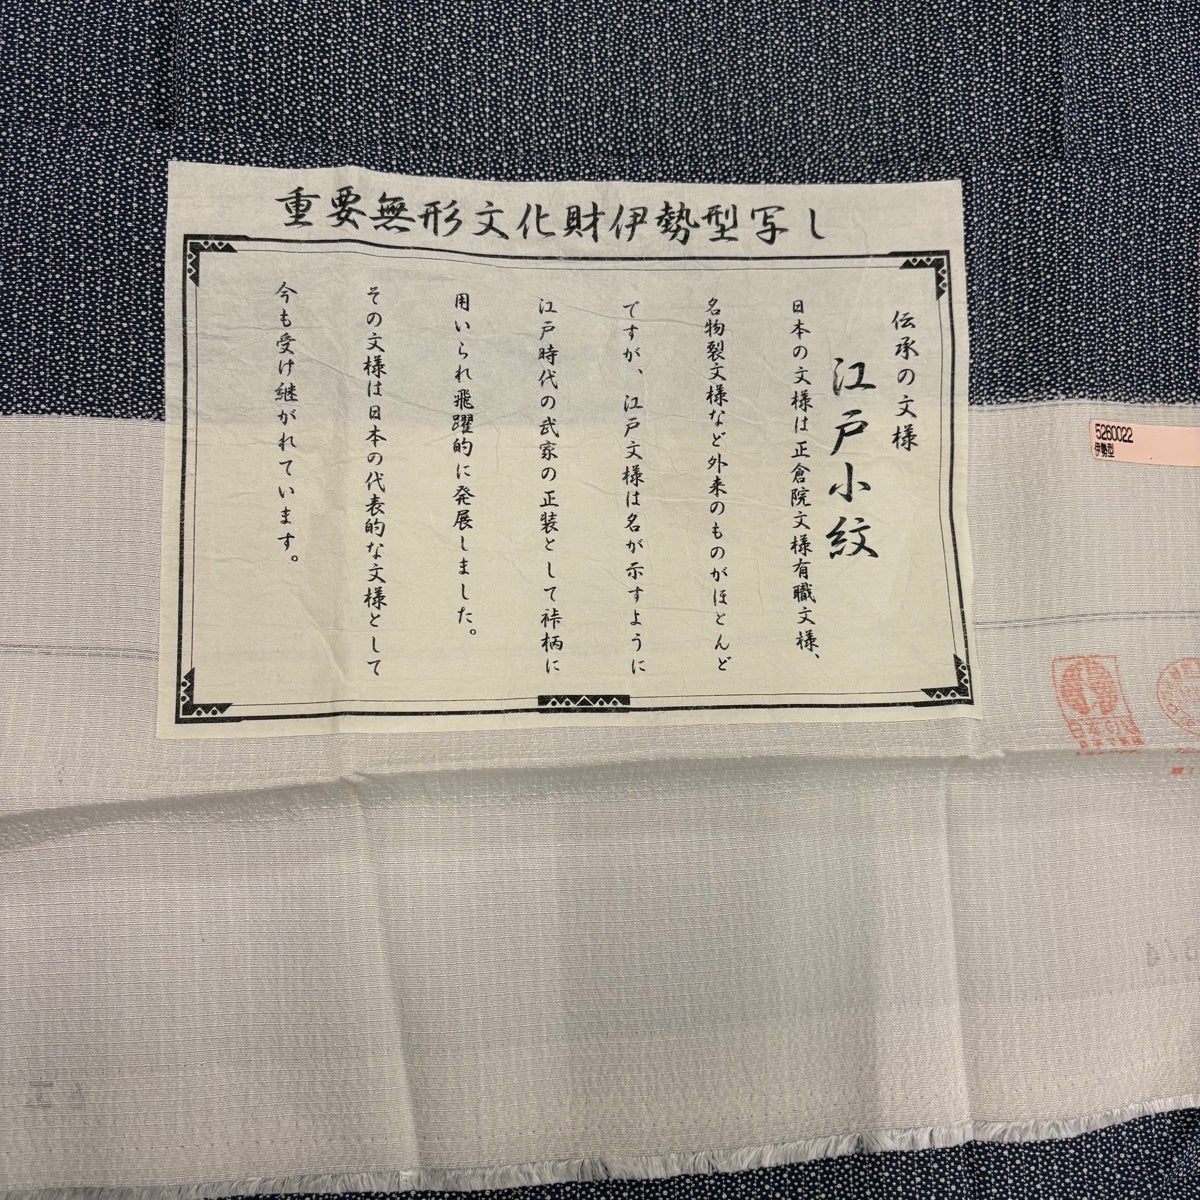 重要無形文化財伊勢型写し
伝承の文様
江戸小紋
日本の文様は正倉院文様有職文様、
名物裂文様など外来のものがほとんど
ですが、江戸文様は名が示すように
江戸時代の武家の正装として裃柄に
用いられ飛躍的に発展しました。
その文様は日本の代表的な文様として
今も受け継がれています。
5260022
伊勢型